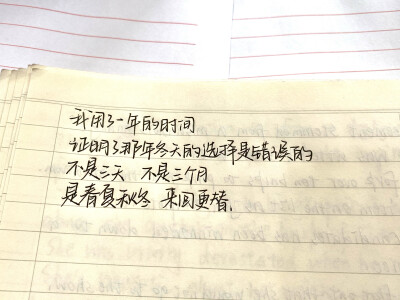 我用了一年的时间
证明了那年冬天的选择是错误的
不是三天 不是三个月
是春夏秋冬 来回更替.